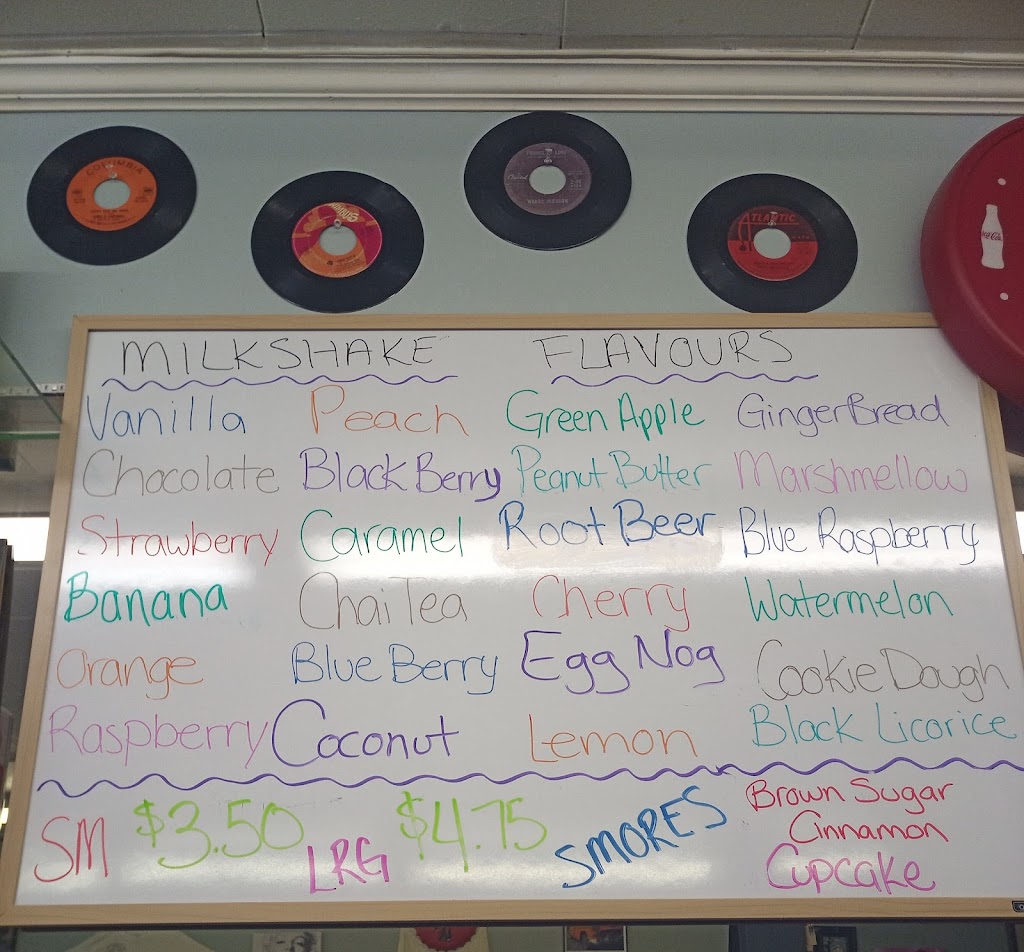 COLUMBIA
ATLANTIC
Coca-Cola
MILKSHAKE FLAVOURS
Vanilla Peach Green Apple GingerBread
Chocolate BlackBerry Peanut Butter Marshmellow
Strawberry Caramel Root Beer Blue Raspberry
Banana Chai Tea Cherry Watermelon
Orange Blue Berry Egg Nog Cookie Dough
Raspberry Coconut Lemon Black Licorice
SM $3.50 LRG $4.75 SMORES
Brown Sugar
Cinnamon
Cupcake